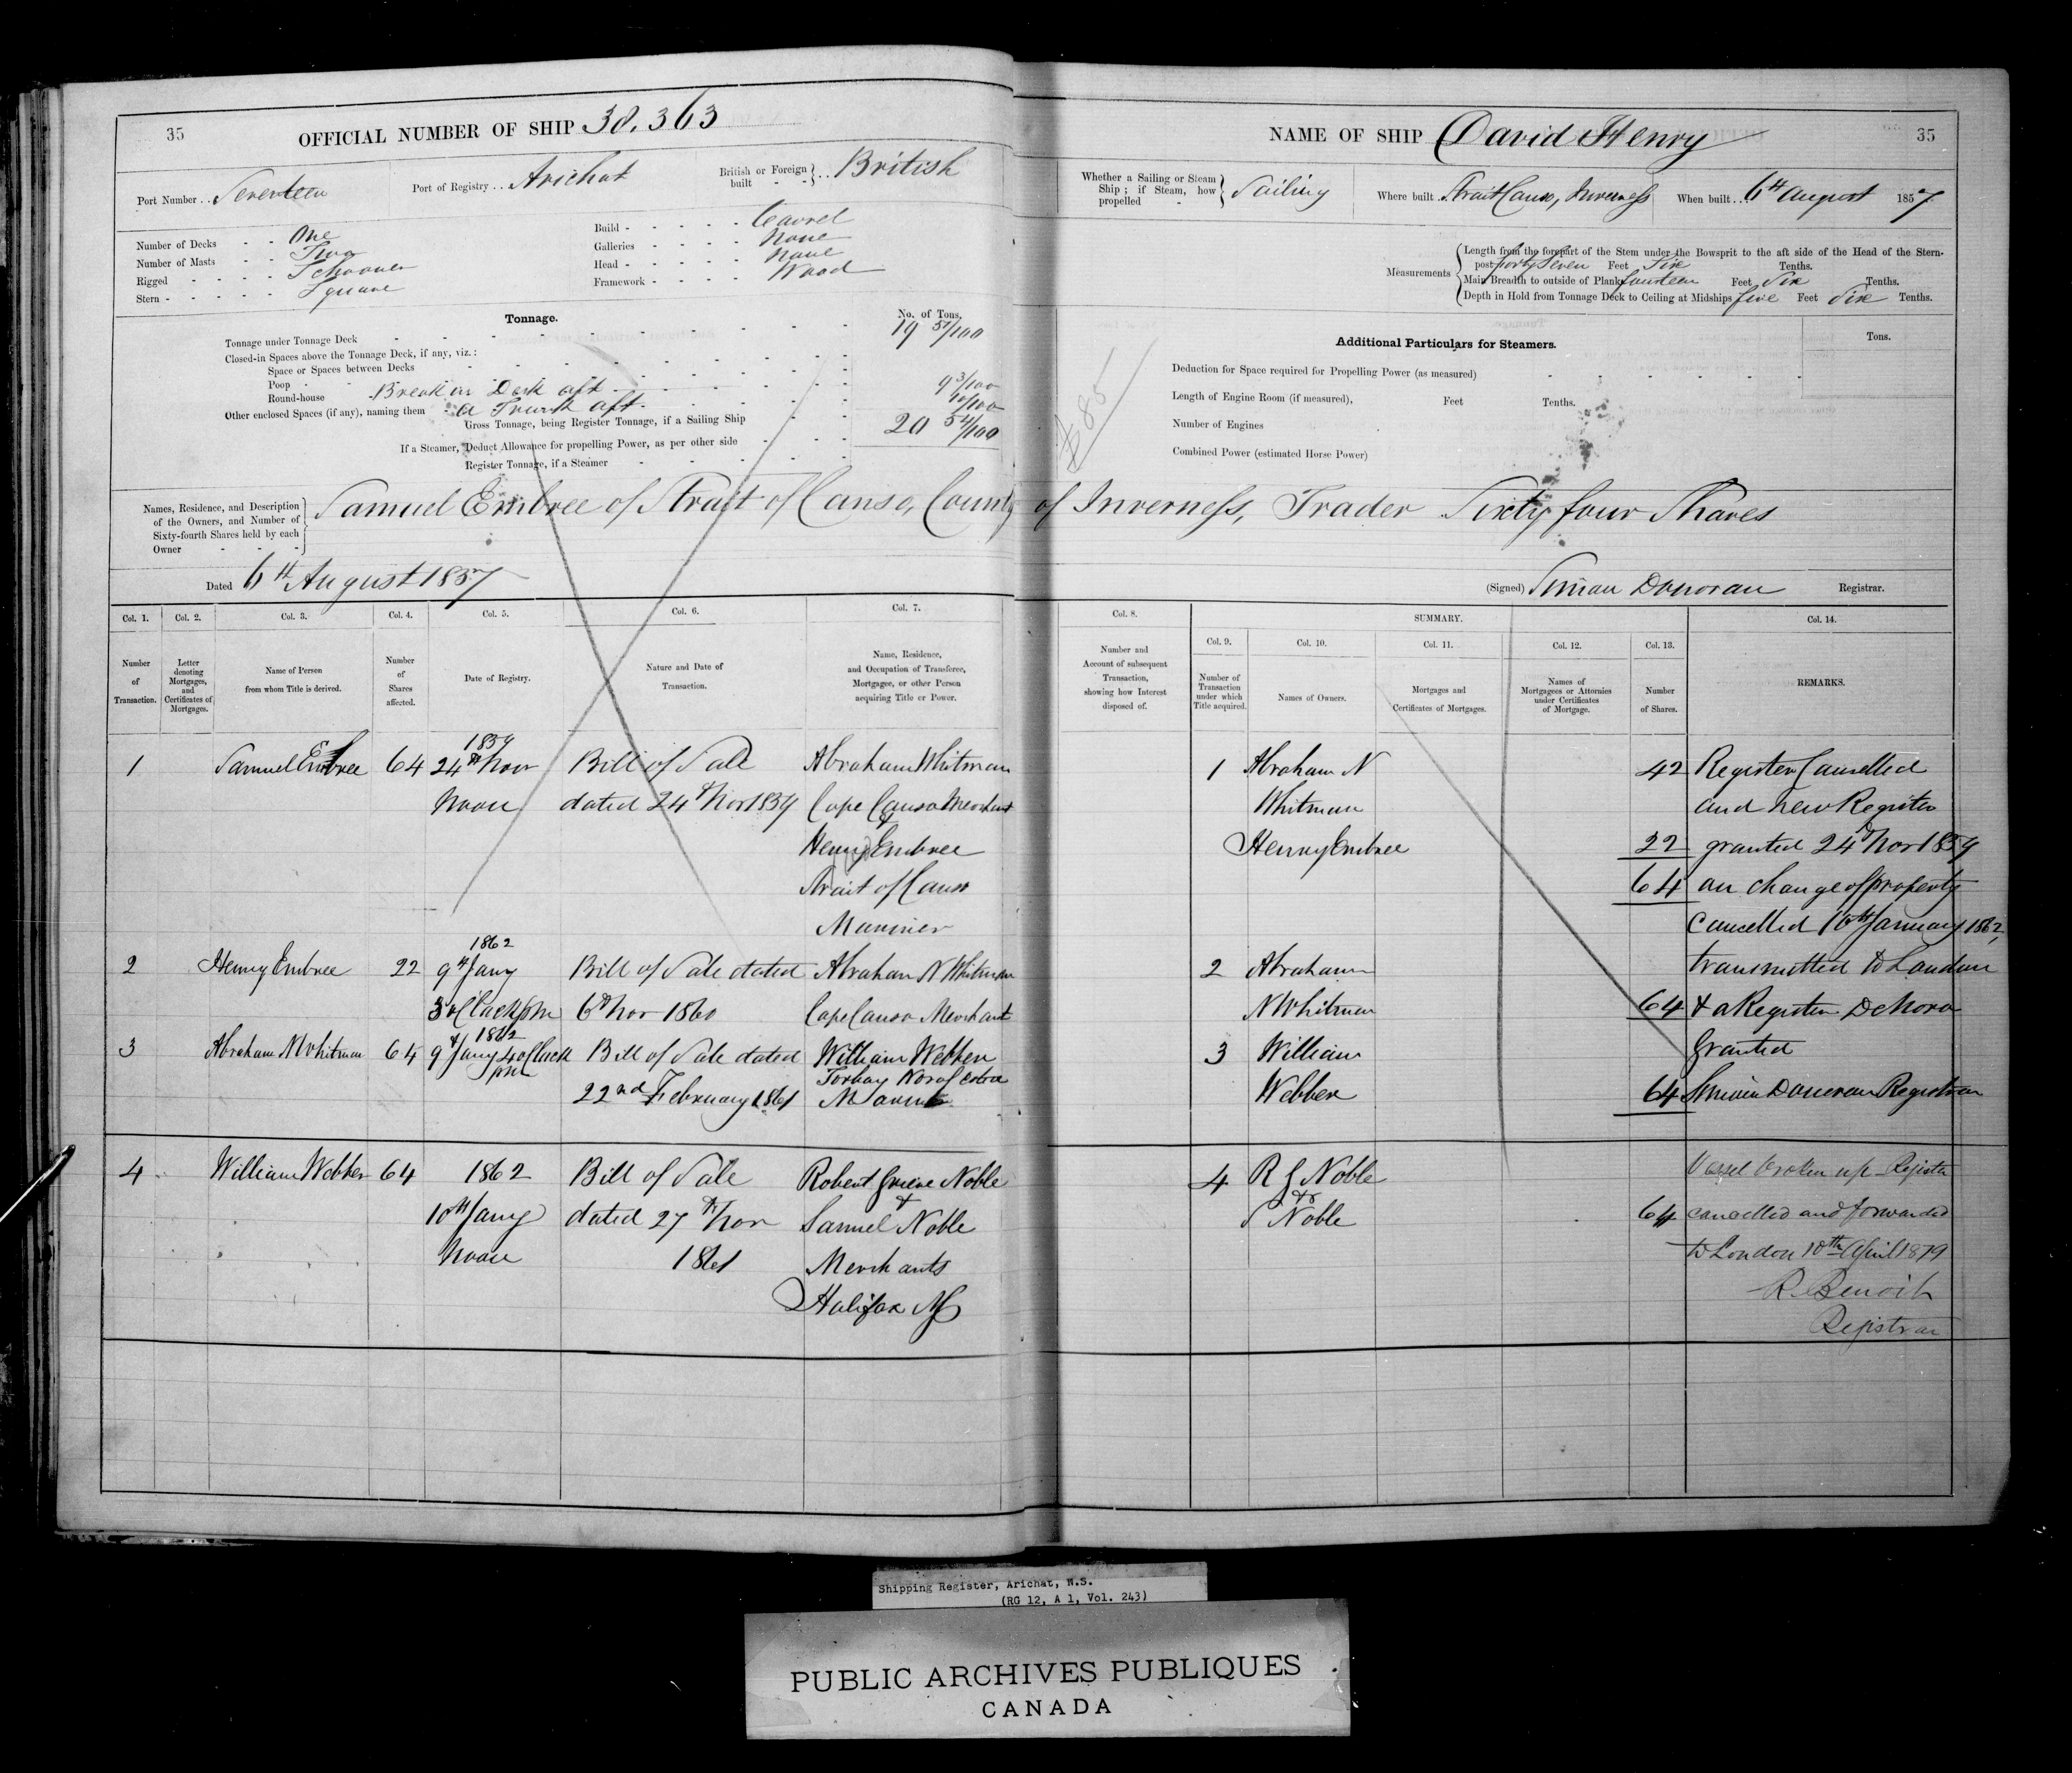 35 OFFICIAL NUMBER OF SHIP 38.363
Port Number .. Seventeen Port of Registry .. Arichat British or Foreign built - - } .. British
Number of Decks - - One
Number of Masts - - Two
Rigged - - - - Schooner
Stern - - - - - Square
Build - - - - - - Carvel
Galleries - - - - None
Head - - - - - None
Framework - - - - Wood
Tonnage. No. of Tons.
Tonnage under Tonnage Deck 19 51/100
Closed-in Spaces above the Tonnage Deck, if any, viz.:
Space or Spaces between Decks
Poop
Round-house Break in Deck aft 93/100
Other enclosed Spaces (if any), naming them a Trunk aft 10/100
Gross Tonnage, being Register Tonnage, if a Sailing Ship 20 54/100
If a Steamer, Deduct Allowance for propelling Power, as per other side
Register Tonnage, if a Steamer
NAME OF SHIP David Henry 35
Whether a Sailing or Steam Ship; if Steam, how propelled - } Sailing Where built .. Strait Canso, Inverness When built .. 6th August 1857
Measurements { Length from the forepart of the Stem under the Bowsprit to the aft side of the Head of the Stern-
post forty Seven Feet Six Tenths.
Main Breadth to outside of Plank fourteen Feet Six Tenths.
Depth in Hold from Tonnage Deck to Ceiling at Midships five Feet Six Tenths.
Additional Particulars for Steamers. Tons.
Deduction for Space required for Propelling Power (as measured)
Length of Engine Room (if measured), Feet Tenths.
Number of Engines
Combined Power (estimated Horse Power)
Names, Residence, and Description
of the Owners, and Number of
Sixty-fourth Shares held by each
Owner - - -
Samuel Embree of Strait of Canso, County of Inverness, Trader Sixty four Shares
Dated 6th August 1857 (Signed) Simon Donovan Registrar.
Col. 1. Col. 2. Col. 3. Col. 4. Col. 5. Col. 6. Col. 7.
Number of Transaction.
Letter denoting Mortgages, and Certificates of Mortgages.
Name of Person from whom Title is derived.
Number of Shares affected.
Date of Registry.
Nature and Date of Transaction.
Name, Residence, and Occupation of Transferee, Mortgagee, or other Person acquiring Title or Power.
Col. 8. SUMMARY. Col. 14.
Col. 9. Col. 10. Col. 11. Col. 12. Col. 13.
Number and Account of subsequent Transaction, showing how Interest disposed of.
Number of Transaction under which Title acquired.
Names of Owners.
Mortgages and Certificates of Mortgages.
Names of Mortgagees or Attornies under Certificates of Mortgage.
Number of Shares.
REMARKS.
1859
1 Samuel Embree 64 24th Novr Bill of Sale Abraham Whitman
Noon dated 24th Nov 1859 Cape Canso Merchant
&
Henry Embree
Strait of Canso
Mariner
1862
2 Henry Embree 22 9th Jany Bill of Sale dated Abraham N Whitman
3 oClock pm 6th Nov 1860 Cape Canso Merchant
1862
3 Abraham N Whitman 64 9th Jany 4 oClock Bill of Sale dated William Webber
pm 22nd February 1861 Torbay Nova Scotia
Mariner
4 William Webber 64 1862 Bill of Sale Robert Grieve Noble
10th Jany dated 27th Nov &
Samuel Noble
Noon 1861 Merchants
Halifax NS
1 Abraham N 42 Register Cancelled
Whitman and New Register
Henry Embree 22 granted 24th Nov 1859
64 on change of property
Cancelled 10th January 1862,
2 Abraham transmitted to London
N Whitman 64 & a Register De Novo
3 William Granted
Webber 64 Simon Donovan Registrar
4 R G Noble Vessel broken up Register
&
S Noble 64 cancelled and forwarded
to London 10th April 1879
R. Benoit
Registrar
Shipping Register, Arichat, N.S.
(RG 12, A 1, Vol. 243)
PUBLIC ARCHIVES PUBLIQUES
CANADA